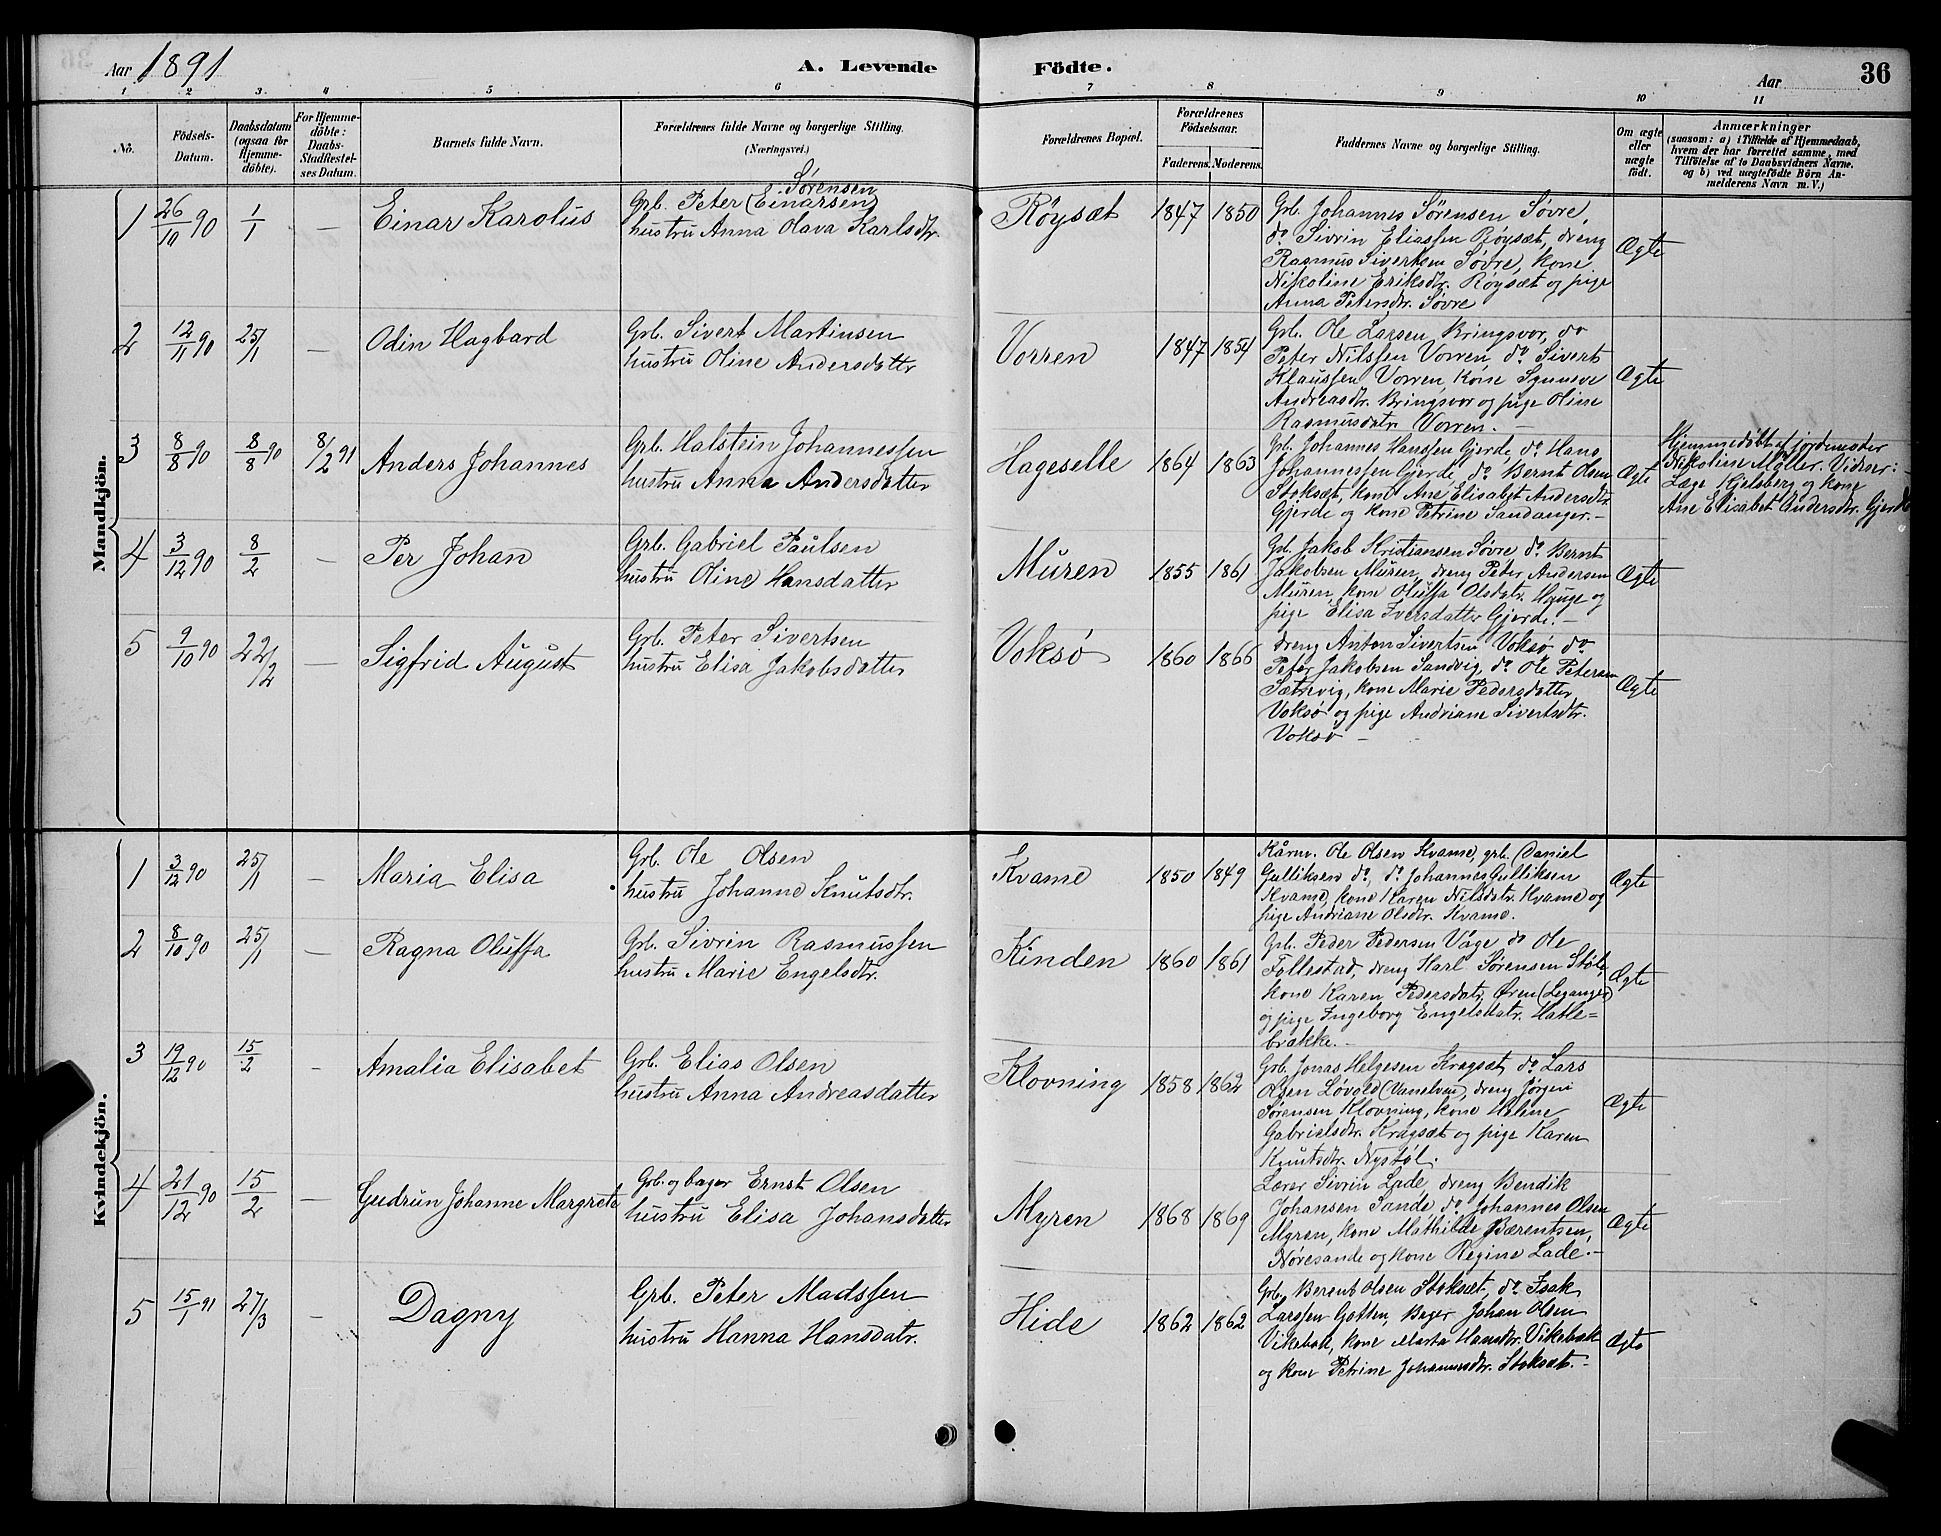 Aar 1891
A. Levende Födte.
Aar
36
1 2 3 4 5 6 7 8 9 10 11
No.
Födsels-Datum.
Daabsdatum (ogsaa for Hjemme-döbte).
For Hjemme-döbte: Daabs-Stadfæstel-ses Datum.
Barnets fulde Navn.
Forældrenes fulde Navne og borgerlige Stilling.
(Næringsvei.)
Forældrenes Bopæl.
Forældrenes Födselsaar.
Faderens. Moderens.
Faddernes Navne og borgerlige Stilling.
Om ægte eller uægte födt.
Anmærkninger
(saasom: a) i Tilfælde af Hjemmedaab,
hvem der har forrettet samme, med
Tilföielse af to Daabsvidners Navne,
og b) ved uægtefödte Börn An-
melderens Navn m. V.)
Mandkjön.
1 26/10 90 1/1 — Einar Karolus
Sørensen
Grb. Peter (Einarsen)
hustru Anna Olava Karlsdtr.
Røysæt 1847 1850
Grb. Johannes Sørensen Søvre,
do Sivrin Eliassen Røysæt, dreng
Rasmus Sivertsen Søvre, kone
Nikoline Eriksdtr. Røysæt og pige
Anna Petersdtr. Søvre
Ægte
2 12/11 90 25/1 — Odin Hagbard
Grb. Sivert Martinsen
hustru Oline Andersdatter
Vorren 1847 1854
Grb. Ole Larsen Bringsvor, do
Peter Nilssen Vorren, do Sivert
Klaussen Vorren, kone Synneve
Andreasdtr. Bringsvor og pige Oline
Rasmusdatr. Vorren. —
Ægte
3 8/8 90 8/8 90 8/2 91 Anders Johannes
Grb. Halstein Johannessen
hustru Anna Andersdatter
Hageselle 1864 1863
Grb. Johannes Hanssen Gjerde, do Hans
Johannessen Gjerde, do Bernt Olsen
Stoksæt, kone Ane Elisabet Andersdtr.
Gjerde og kone Petrine Sandanger. —
Ægte
Hjemmedøbt af jordemoder
Nikoline Møller. Vidner:
Læge Kjelsberg og kone
Ane Elisabet Andersdtr. Gjerde
4 3/12 90 8/2 — Per Johan
Grb. Gabriel Paulsen
hustru Oline Hansdatter
Muren 1855 1861
Grb. Jakob Kristiansen Søvre, do Bernt
Jakobsen Muren, dreng Peter Andersen
Muren, kone Oluffa Olsdatr. Hauge og
pige Elisa Iversdatter Gjerde. —
Ægte
5 9/10 90 22/2 — Sigfrid August
Grb. Peter Sivertsen
hustru Elisa Jakobsdatter
Voksø 1860 1866
dreng Anton Sivertsen Voksø, do
Peter Jakobsen Sandvig, do Ole Petersen
Sætrevig, kone Marie Pedersdatter
Voksø og pige Andriane Sivertsdtr.
Voksø —
Ægte
Kvindekjön.
1 3/12 90 25/1 — Maria Elisa
Grb. Ole Olsen
hustru Johanne Knutsdtr.
Kvame 1850 1849
Kårm. Ole Olsen Kvame, grb. Daniel
Gulliksen do, do Johannes Gulliksen
Kvame, kone Karen Nilsdatr. Kvame og
pige Andriane Olsdtr. Kvame.
Ægte
2 8/10 90 25/1 — Ragna Oluffa
Grb. Sivrin Rasmussen
hustru Marie Engelsdtr.
Kinden 1860 1861
Grb. Peder Pedersen Våge, do Ole
Follestad, dreng Karl Sørensen Støle,
kone Karen Pedersdatr. Øren (Leganger)
og pige Ingeborg Engelsdatr. Hatle-
brække. —
Ægte
3 19/12 90 15/2 - Amalia Elisabet
Grb. Elias Olsen
hustru Anna Andreasdatter
Klovning 1858 1862
Grb. Jonas Helgesen Kragsæt, do Lars
Olsen Løvold (Vanelven), dreng Jørgen
Sørensen Klovning, kone Heline
Gabrielsdtr. Kragsæt og pige Karen
Knutsdtr. Nystøl.
Ægte
4 21/12 90 15/2 — Gudrun Johanne Margrete
Grb. og bager Ernst Olsen
hustru Elisa Johansdatter
Myren 1868 1869
Lærer Sivrin Lade, dreng Bendik
Johansen Sande, do Johannes Olsen
Myren, kone Mathilde Bærentsen,
Nøresande og kone Regine Lade. —
Ægte
5 15/1 91 27/3 — Dagny
Grb. Peter Madssen
hustru Hanna Hansdatr.
Hide 1862 1862
Grb. Berent Olsen Stoksæt, do Isak
Larssen Gotten, Bager Johan Olsen
Vikebak, kone Marta Hansdtr. Vikebak
og kone Petrine Johannesdtr. Stoksæt. —
Ægte